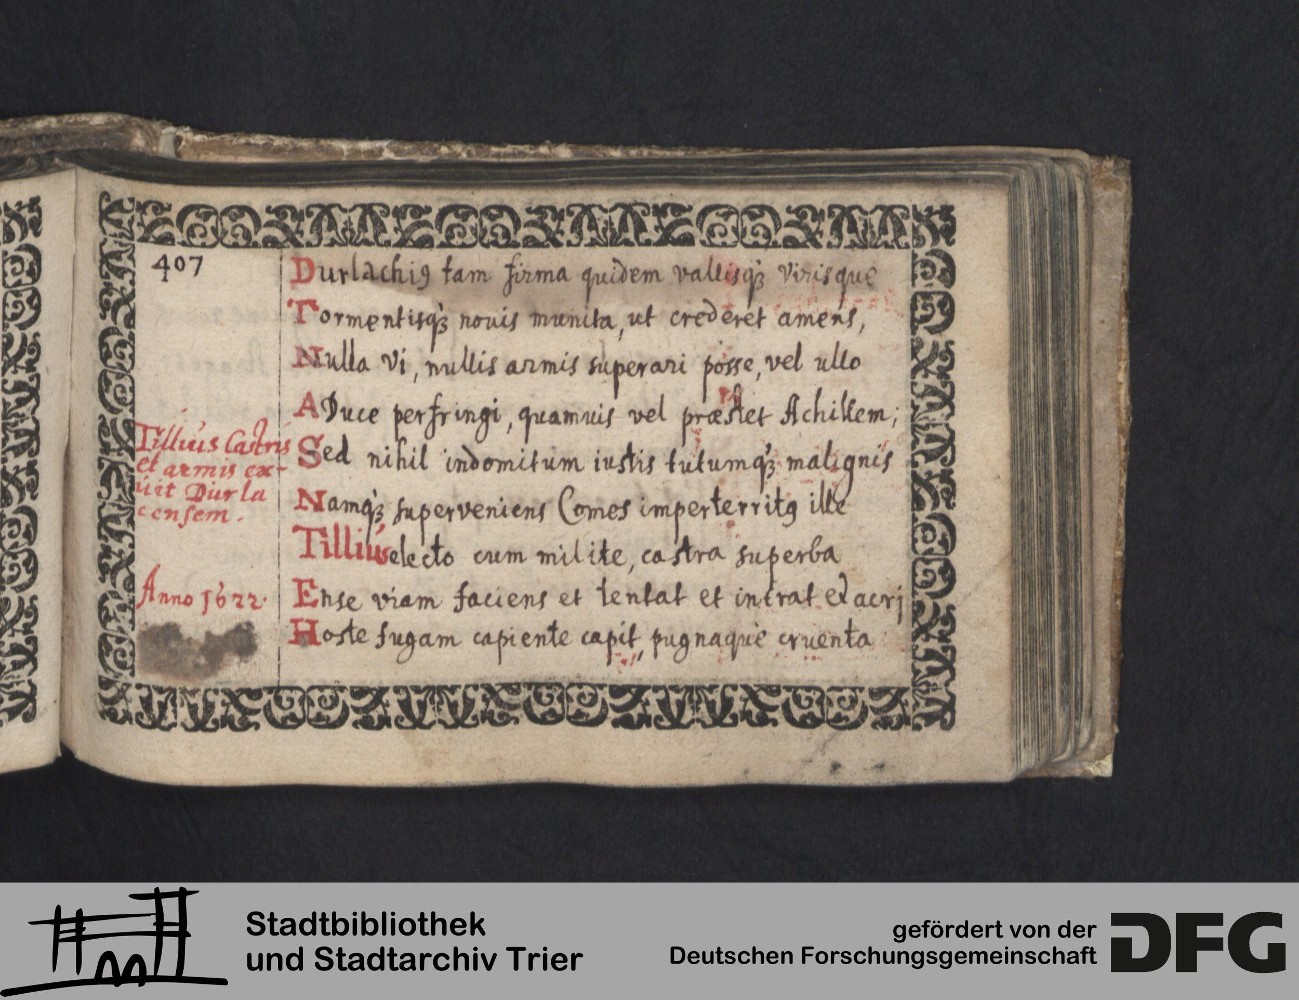 407
Durlachiꝰ tam firma quidem vallisqꝫ virisque
Tormentisqꝫ novis munita, ut crederet amens,
Nulla vi, nullis armis superari posse, vel ullo
A Duce perfringi, quamvis vel præstet Achillem;
Sed nihil indomitum iustis tutumqꝫ malignis
Namqꝫ superveniens Comes imperterritꝰ ille
Tilliús electo cum milite, castra superba
Ense viam faciens et tentat et intrat et acrj
Hoste fugam capiente capit, pugnaquè cruenta
Tillius Castris
et armis ex-
uit Durla
censem.
Anno 1622.
Stadtbibliothek
und Stadtarchiv Trier
gefördert von der
Deutschen Forschungsgemeinschaft
DFG